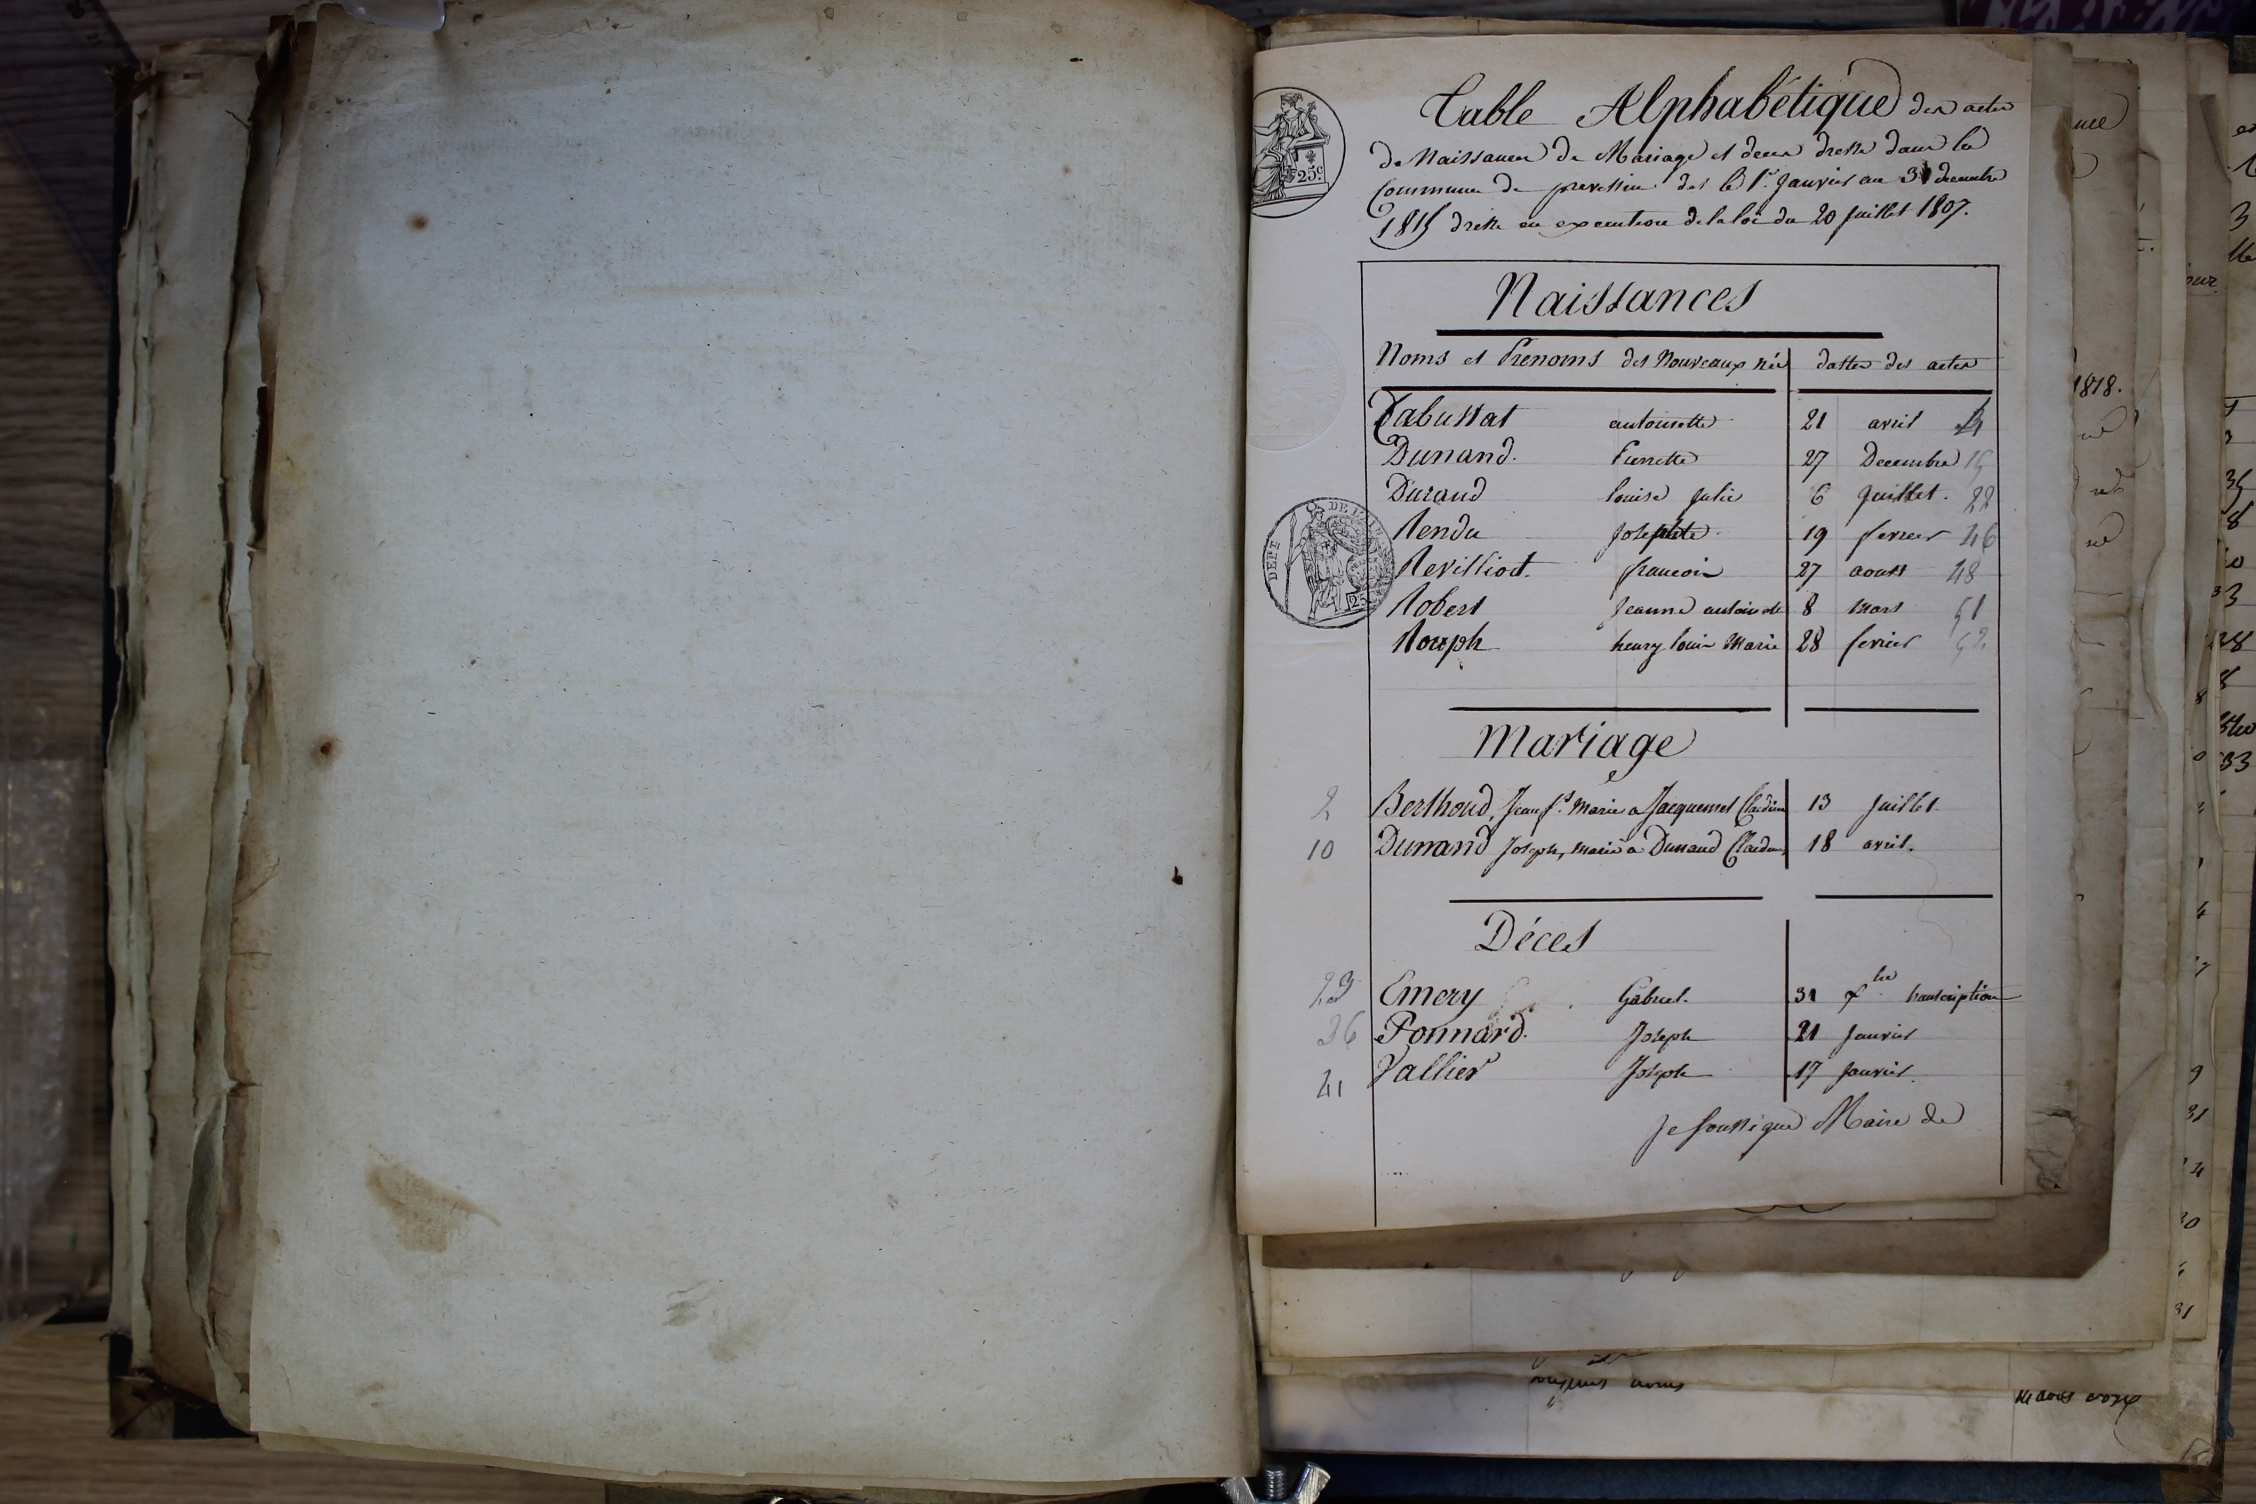 Table Alphabétique des actes
de Naissance de Mariage et deces dressé dans la
Commune de prevessin des le 1er Janvier au 31 decembre
1815 dressé en execution de la loi du 20 Juillet 1807.
25c
Naissances
Noms et Prenoms des Nouveaux née dattes des actes
Tabussat antoinette 21 avril
Dunand. Pierrette 27 Decembre 15
Durand louise Julie 6 Juillet. 22
DEPT DE L'
Rendu Josephte 19 fevrier 46
Revilliod. francois 27 aoust 48
25
Robert Jeanne antoinette 8 Mars 51
Rouph henry louis Marie 28 fevrier 52
Mariage
2 Berthoud, Jean fs. Marié a Jacquemet Claudine 13 Juillet
10 Dunand Joseph, marié a Dunand Claudine 18 avril.
Déces
23 Emery Gabriel. 31 transcription
36 Ponnard. Joseph 21 Janvier
41 Vallier Joseph 17 Janvier
Je soussigné Maire de
1818.